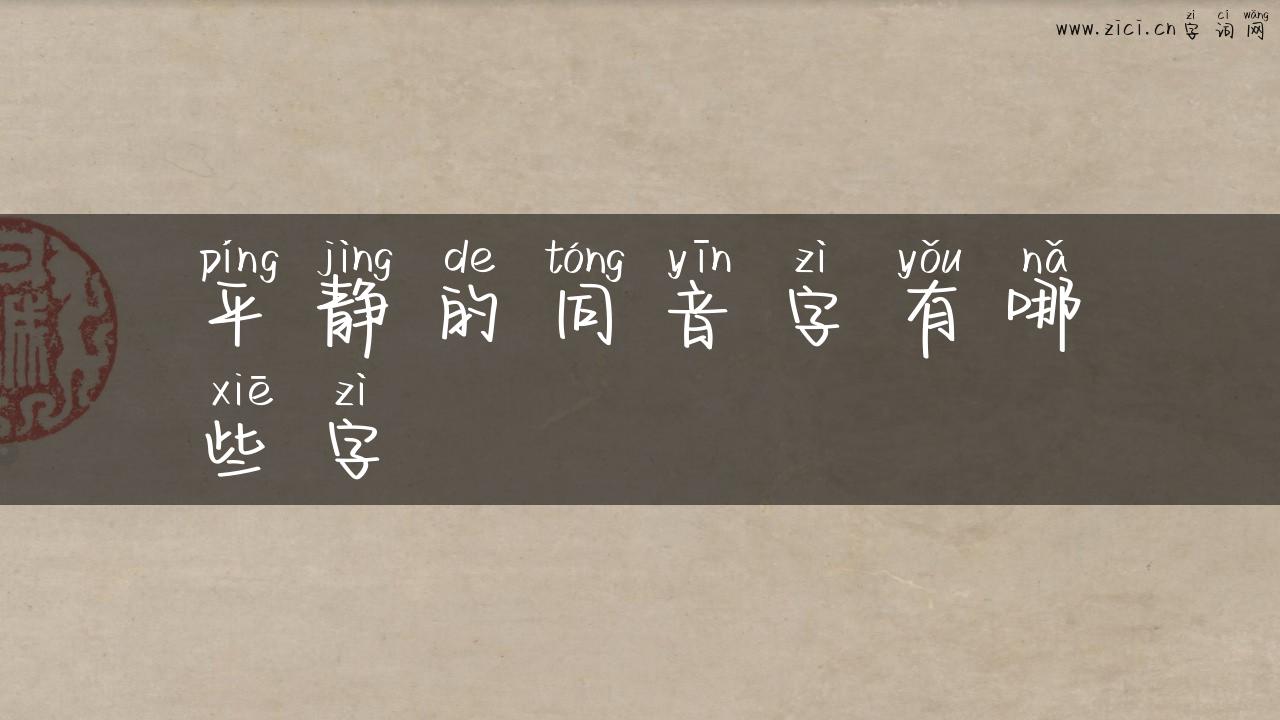 www.zici.cn 字词网
zì cí wǎng
píng jìng de tóng yīn zì yǒu nǎ
平静的同音字有哪
xiē zì
些字